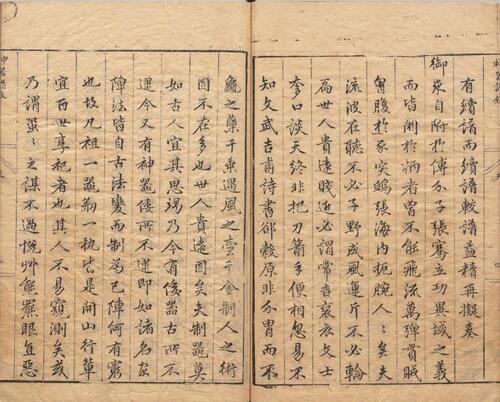 有續譜而續譜較譜益精再擬奏
御衆自附於傅介子張騫立功異域之義
而皆闕於病者曾不能飛流萬彈貫賊
胷腹於豕突鴟張海内扼腕人人矣夫
流波在聽不必子野成風運斤不必輪
爲世人貴遠賤近必謂常吉裒衣文士
李口談天終非把刀箭手便相忽易不
知文武吉甫詩書郤縠原非介胄而不
龜之藥千乘遇風之壺千金制人之術
固不在多也世人貴遠固矣夫制器莫
如古人宜其思竭乃今有倭器古所不
逮今又有神器倭所不逮即如諸名
陣法皆自古法變而制為已陣何有窮
也故凡祖一器一執皆是開山行輩
宜百世享祀者也其人不易窺測矣茲
乃謂蛩蛩之謀不過悦艸能羆眼直惡